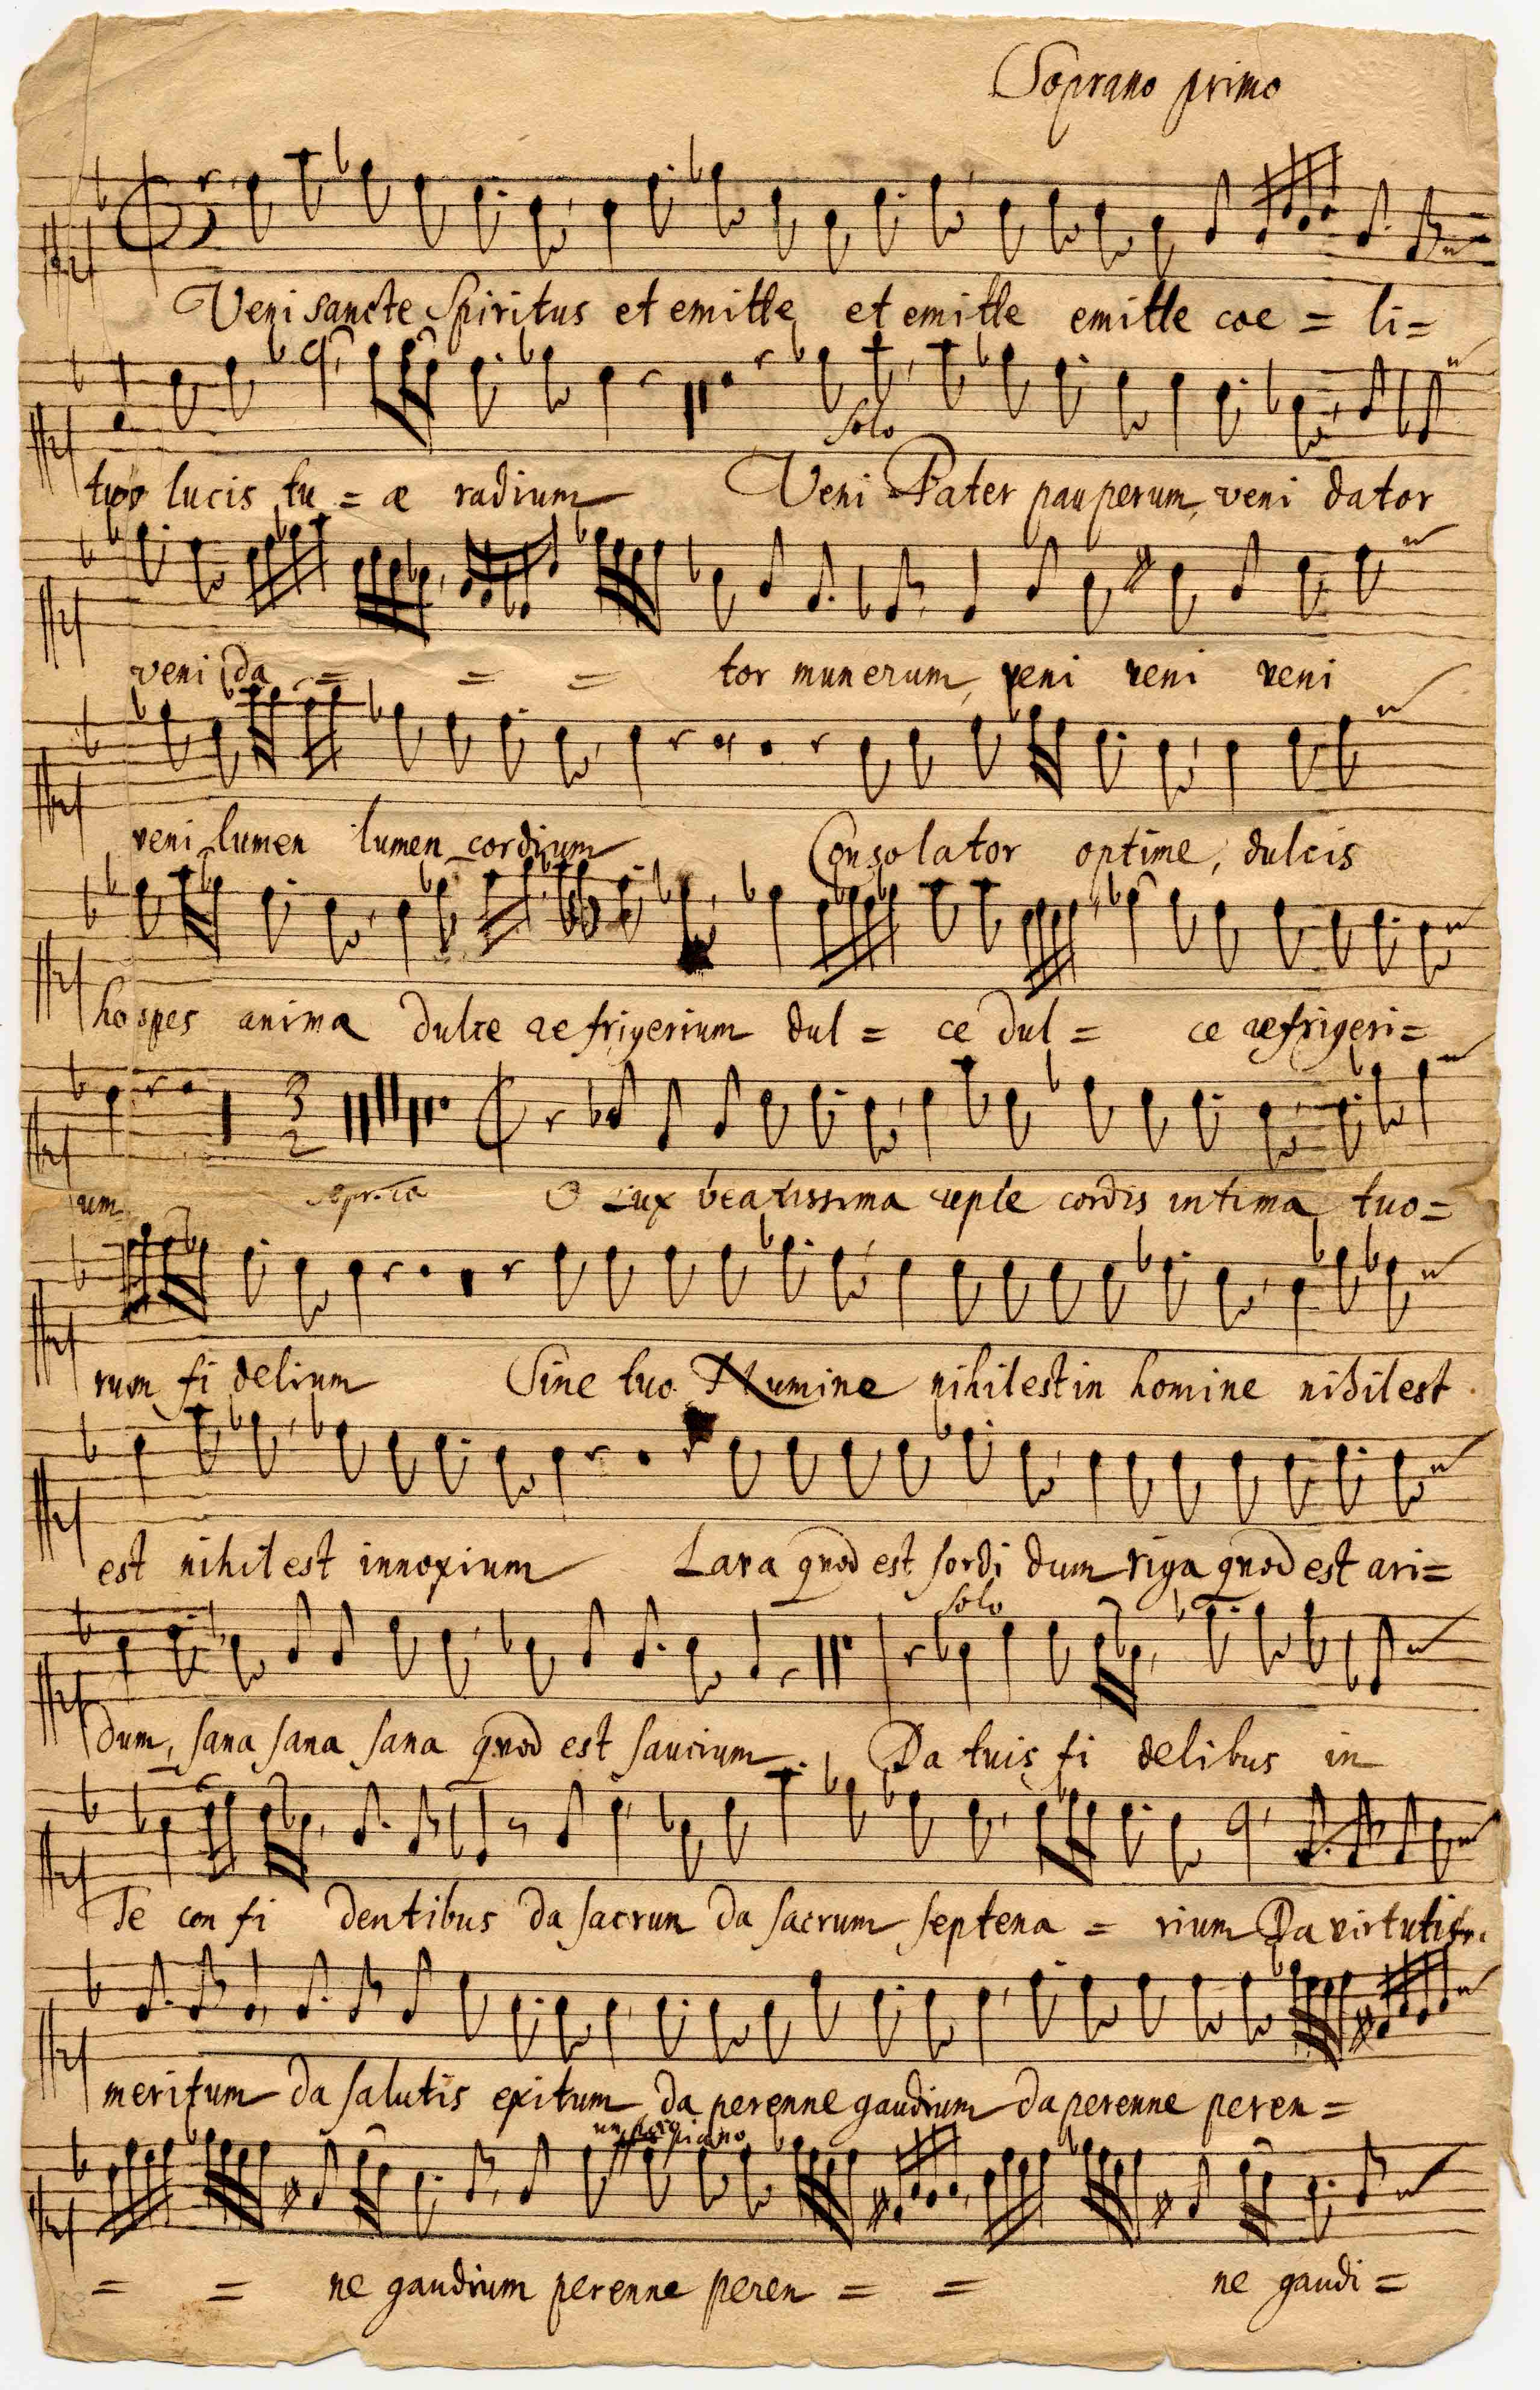 Soprano primo
Veni sancte Spiritus et emitte et emitte emitte coe = li =
tus lucis tu = æ radium Veni Pater pauperum, veni dator
solo
veni da = = = tor munerum, veni veni veni
veni lumen lumen cordium Consolator optime, dulcis
hospes anima dulce refrigerium dul = ce dul = ce refrigeri =
3
2
um O Lux beatissima reple cordis intima tuo =
rum fi delium Sine tuo Numine nihil est in homine nihil est
est nihil est innoxium Lava quod est sordi dum riga quod est ari =
solo
dum, sana sana sana quod est saucium. Da tuis fi delibus in
Te con fi dentibus da sacrum da sacrum septena = rium Da virtutis
meritum da salutis exitum da perenne gaudium da perenne peren =
piano
= = ne gaudium perenne peren = = ne gaudi =